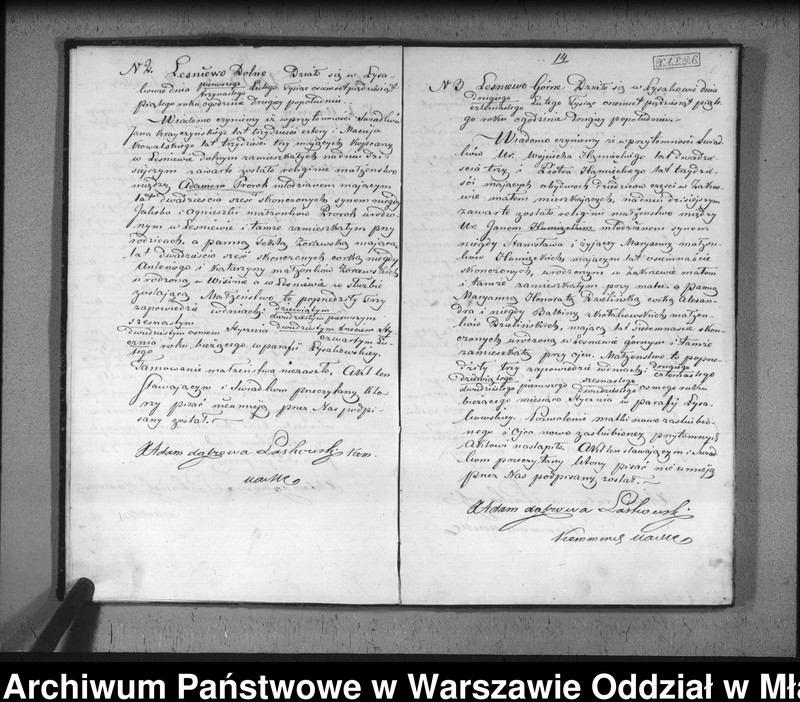 N 2. Leśniewo Dolne Działo się w Łysa-
kowie dnia pierwszego
trzynastego Lutego Tysiąc osiemset pięćdziesiąt
piątego roku o godzinie drugiey popołudniu.
Wiadomo czynimy iż w przytomności Świadków
Jana lat trzydzieści cztery i Macieja
Kowalskiego lat trzydzieści trzy mających
w Leśniewie Dolnym zamieszkałych na dniu dzi-
siejszym zawarte zostało religijne małżeństwo
między Adamem Prorok młodzianem mającym
lat dwadzieścia sześć skończonych synem niegdy
Jakóba i Agnieszki małżonków Prorok urodzo-
nym w Leśniewie i tamże zamieszkałym przy
rodzicach, a panną Teklą Żórawską mającą
lat dwadzieścia sześć skończonych córką niegdy
Antoniego i Katarzyny małżonków Żórawskich
urodzoną w a w Leśniewie w służbie
zostającą. Małżeństwo to poprzedziły trzy
zapowiedzie w dniach: dziewiątym
dwudziestym pierwszym
szesnastym
dwudziestym ósmym Stycznia dwudziestym trzecim Sty-
czwartym Lu-
cznia
tego roku bieżącego w parafii Łysakowskiey.
Tamowanie małżeństwa niezaszło. Akt ten
stawającym i Świadkom przeczytany któ-
rzy pisać nieumieją przez Nas podpi-
sany został.
X Adam dąbrowa Laskowski Kom.
14
X.A.L.D.6
N 3 Leśniewo Górne Działo się w Łysakowie dnia
drugiego
czternastego Lutego Tysiąc osiemset pięćdziesiąt piąte-
go roku o godzinie drugiey popołudniu.
Wiadomo czynimy iż w przytomności Świad-
ków Ur. Wojciecha lat dwadzie-
ścia trzy i Piotra lat trzydzie-
ści mających obydwóch dziedziców części w Zakrze-
wie małem mieszkających, na dniu dzisiejszym
zawarte zostało religijne małżeństwo między
Ur. Janem młodzianem synem
niegdy Stanisława i żyjącej Maryanny małżon-
ków mającym lat osiemnaście
skończonych, urodzonym w Zakrzewie małem
i tamże zamieszkałym przy matce a panną
Maryanną Honoratą Dzielińską córką Alexan-
dra i niegdy Balbiny z małżon-
ków Dzielińskich, mającą lat siedemnaście skoń-
czonych urodzoną w Leśniewie górnym i tamże
zamieszkałą przy ojcu. Małżeństwo to poprze-
dziły trzy zapowiedzie w dniach: drugiego
czternastego
dziewiątego
dwudziestego pierwszego szesnastego
dwudziestego ósmego roku
bieżącego miesiąca Stycznia w parafii Łysa-
kowskiey. Pozwolenie matki nowo zaślubio-
nego i Ojca nowo zaślubionej przytomnych
Aktowi nastąpiło. Akt ten stawającym i Świad-
kom przeczytany który pisać nie umieją
przez Nas podpisany został.
X Adam dąbrowa Laskowski
Archiwum Państwowe w Warszawie Oddział w Mła